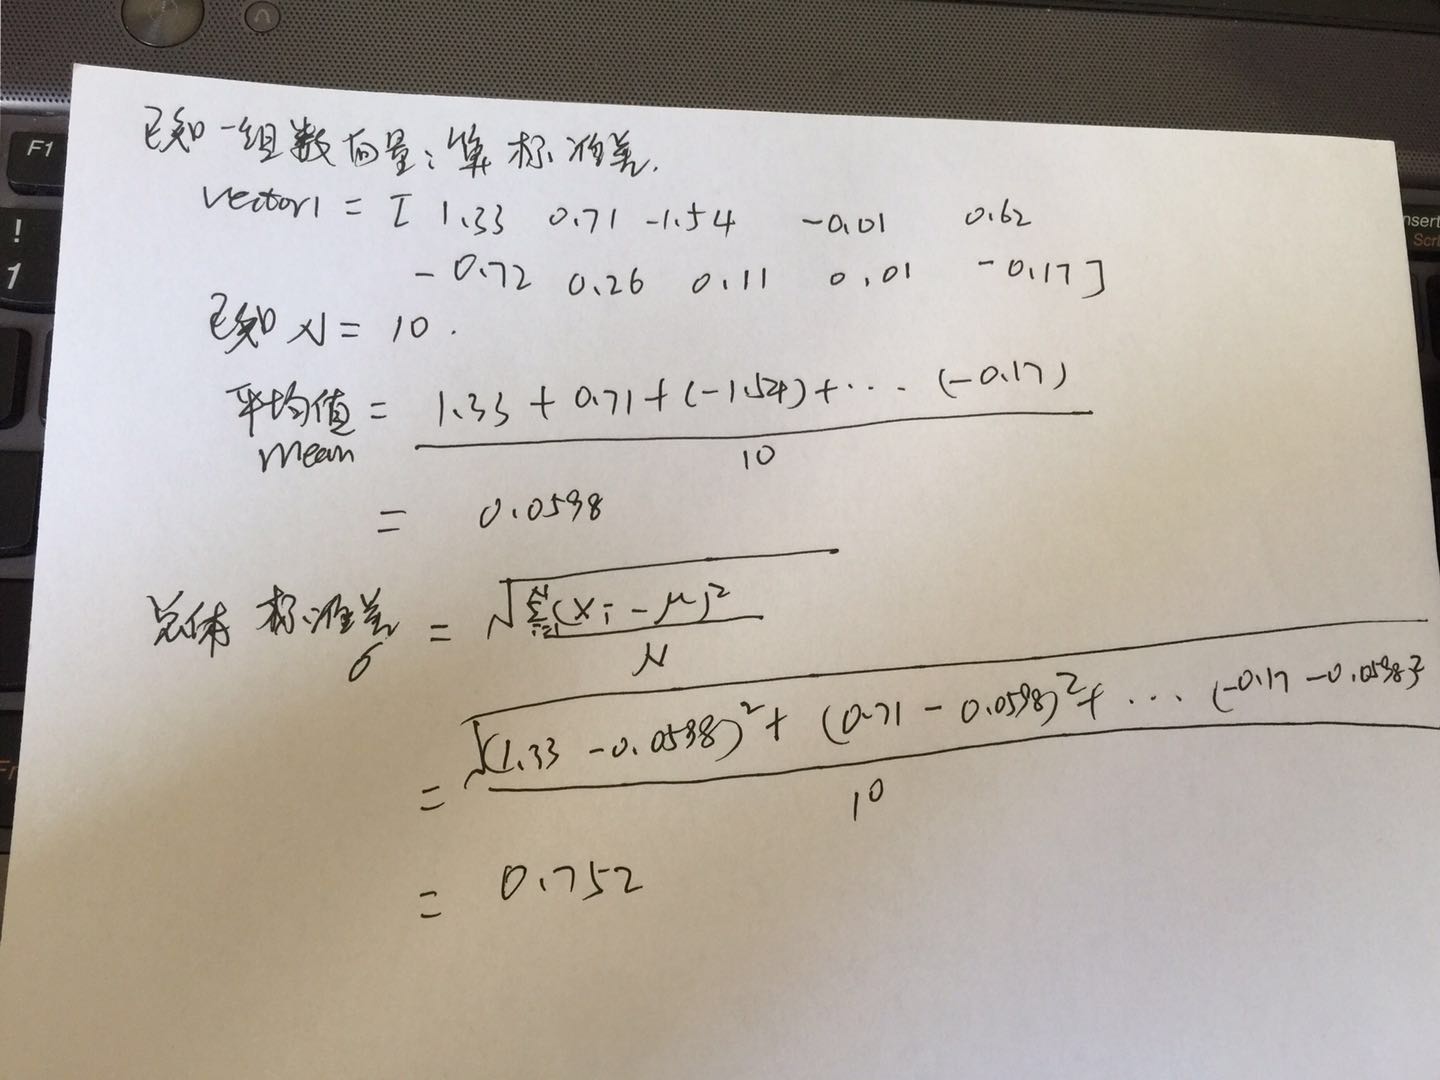 F1
!
1
insert
已知一组数向量:算标准差.
vector1 = [ 1.33 0.71 -1.54 -0.01 0.62
-0.72 0.26 0.11 0.01 -0.17]
已知 N = 10.
平均值 = 1.33 + 0.71 + (-1.54) + ... (-0.17)
mean
10
= 0.0598
总体 标准差 = √ Σ (xi - μ)²
N
i=1
σ
N
= √(1.33 - 0.0598)² + (0.71 - 0.0598)² + ... (-0.17 - 0.0598)²
10
= 0.752